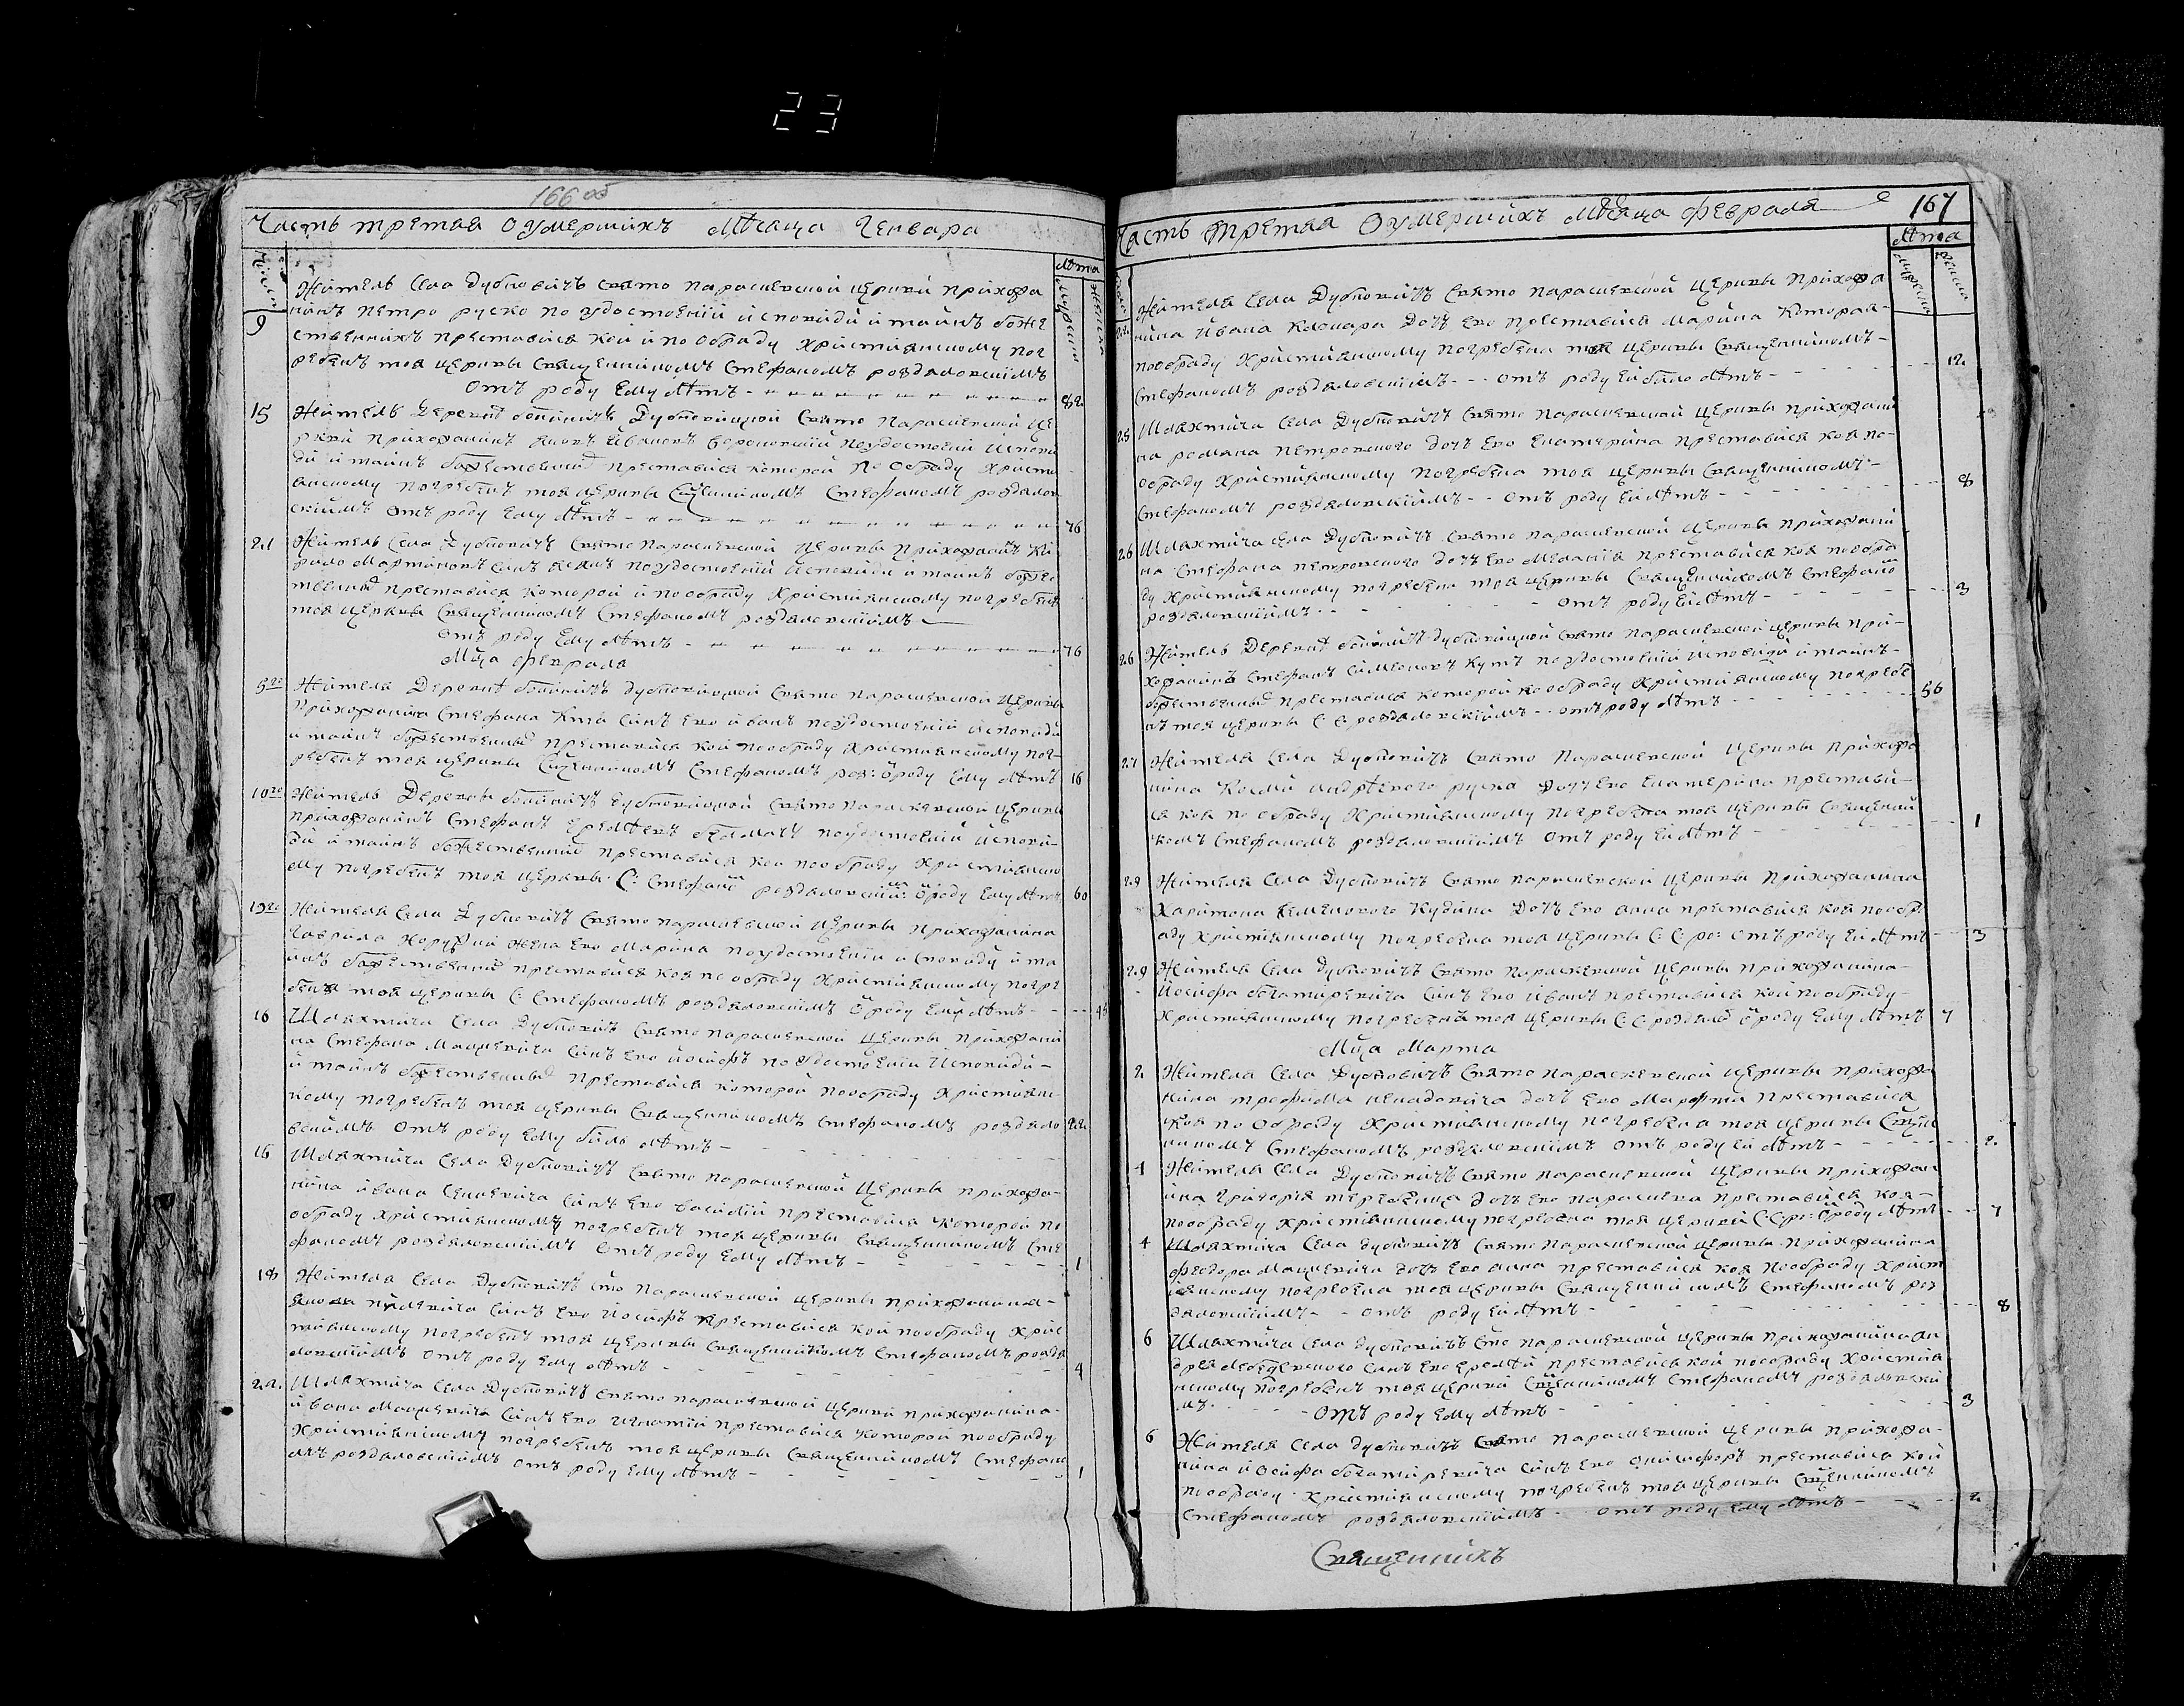 23
166 об
Часть третая О умершихъ Мѣсаца Генвара
Число
лѣта
мужеска
женска
9
Жителъ Села Дубновичъ Свято Параскевской церкви прихожа
нинъ Петро руско по удостоенїи исповиди и таинъ боже
ственнихъ преставися кой и по обраду християнскому пог
ребенъ тоя церкви Священникомъ Стефаномъ роздяловскимъ
Отъ роду Ему лѣтъ - 82
15 Жителъ Деревнѣ Дубновицкой Свято Параскевской це
ркви прихожанинъ Иванокъ по удостоенїи испови
ди и таинъ божественнихъ преставися которой по обраду христи
янскому погребенъ тоя церкви Священникомъ Стефаномъ роздялов
скимъ Отъ роду Ему лѣтъ - 76
21 Жителъ Села Дубновичъ Свято Параскевской церкви прихожанинъ Ки
рило Мартиновъ по удостоенїи исповиди и таинъ божес
твеннихъ преставися которой и по обраду християнскому погребенъ
тоя церкви Священникомъ Стефаномъ роздяловскимъ
Отъ роду Ему лѣтъ - 76
Мца Февраля
5го Жителя Деревнѣ Дубновицкой Свято Параскевской церкви
прихожанина Стефана Сынъ Его Иванъ по удостоенїи исповиди
и таинъ божественнихъ преставися кой по обраду християнскому пог-
ребенъ тоя церкви Священникомъ Стефаномъ роз: ѿ роду Ему лѣтъ 16
10го Жителъ Деревни Дубновицкой Свято Параскевской церкви
прихожанинъ Стефанъ по удостоенїи испови-
ди и таинъ божественнихъ преставися кой по обраду християнско
му погребенъ тоя церкви С: Стефано роздяловским: ѿ роду Ему лѣтъ 60
19го Жителя Села Дубновичъ Свято Параскевской церкви прихожанина
Гаврила жена Его Марина по удостоенїи исповиди и та
инъ божественнихъ преставися коя по обраду християнскому погре
бена тоя церкви С: Стефаномъ роздяловскимъ ѿ роду Ей лѣтъ
16 Шляхтича Села Дубновичъ Свято Параскевской церкви прихожани
на Стефана Мацкевича Сынъ Его Иосифъ по удостоенїи исповиди
и таинъ божественнихъ преставися которой по обраду християнс
кому погребенъ тоя церкви Священникомъ Стефаномъ роздяло
вскимъ Отъ роду Ему било лѣтъ - 22
16 Шляхтича Села Дубновичъ Свято Параскевской церкви прихожа-
нина Ивана Сенкевича Сынъ Его Василий преставися которой по
обраду християнскому погребенъ тоя церкви Священникомъ Сте
фаномъ роздяловскимъ Отъ роду Ему лѣтъ - 1
18 Жителя Села Дубновичъ Сто Параскевской церкви прихожанина
Сынъ Его Иосифъ преставися кой по обраду хрис
тиянскому погребенъ тоя церкви Священникомъ Стефаномъ роздя
ловскимъ Отъ роду Ему лѣтъ - 4
22 Шляхтича Села Дубновичъ Свято Параскевской церкви прихожанина
Ивана Мацкевича Сынъ Его Игнатий преставися которой по обраду
християнскому погребенъ тоя церкви Священникомъ Стефано
мъ роздяловскимъ Отъ роду Ему лѣтъ - 1
Часть Третая О умершихъ мѣсяца Февраля 167
лѣта
22 Жителя Села Дубновичъ Свято Параскевской церкви прихожа
нина Ивана Дочъ Его преставися Марина которая
по обраду християнскому погребена тоя церкви Священникомъ
Стефаномъ роздяловскимъ - - отъ роду Ей било лѣтъ - 12
25 Шляхтича Села Дубновичъ Свято Параскевской церкви прихожани
на Романа Петровского дочъ Его Екатерина преставися коя по
обраду християнскому погребена тоя церкви Священникомъ
Стефаномъ роздяловскимъ - - отъ роду Ей лѣтъ - 8
26 Шляхтича Села Дубновичъ Свято Параскевской церкви прихожани
на Стефана Петровского дочъ Его Меланїя преставися коя по обра
ду християнскому погребена тоя церкви Священникомъ Стефано
роздяловскимъ - отъ роду Ей лѣтъ - 3
26 Жителъ Деревнѣ Дубновицкой Свято Параскевской церкви при
хожанинъ Стефанъ Симеоновъ Кутъ по удостоенїи исповиди и таинъ
божественнихъ преставися которой по обраду християнскому погребе
нъ тоя церкви С С роздяловскимъ - - отъ роду лѣтъ - 56
27 Жителя Села Дубновичъ Свято Параскевской церкви прихожа
нина Козми Андрѣевого руска Дочъ Его Екатерина престави
ся коя по обраду християнскому погребена тоя церкви Священни
комъ Стефаномъ роздяловскимъ отъ роду Ей лѣтъ - 1
29 Жителя Села Дубновичъ Свято Параскевской церкви прихожанина
Харитона Семенового Кудина Дочъ Его Анна преставися коя по обр
аду християнскому погребена тоя церкви С: С: ро: отъ роду Ей лѣтъ - 3
29 Жителя Села Дубновичъ Свято Параскевской церкви прихожанина
Иосифа Богатиревича Сынъ Его Иванъ преставися кой по обраду
християнскому погребенъ тоя церкви С: С: роздяло ѿ роду Ему лѣтъ 7
Мца Марта
2 Жителя Села Дубновичъ Свято Параскевской церкви прихожа
нина Трофима дочъ Его Марфа преставися
коя по обраду християнскому погребена тоя церкви Священ
никомъ Стефаномъ роздяловскимъ отъ роду Ей лѣтъ - 2
4 Жителя Села Дубновичъ Свято Параскевской церкви прихожан
ина Григория дочъ Его Параскева преставися коя
по обраду християнскому погребена тоя церкви С: С: р: ѿ роду лѣтъ - 7
4 Шляхтича Села Дубновичъ Свято Параскевской церкви прихожанина
Феодора Мацкевича дочъ Его Анна преставися коя по обраду христ
иянскому погребена тоя церкви Священникомъ Стефаномъ роз
дяловскимъ - - отъ роду Ей лѣтъ - 8
6 Шляхтича Села Дубновичъ Сто Параскевской церкви прихожанина Ан
дрея Сынъ Его Еремѣй преставися кой по обраду християн
нскому погребенъ тоя церкви Священникомъ Стефаномъ роздяловски
мъ - Отъ роду Ему лѣтъ - 3
6 Жителя Села Дубновичъ Свято Параскевской церкви прихожа-
нина Иосифа Богатиревича Сынъ Его Онисифоръ преставися кой
по обраду християнскому погребенъ тоя церкви Священникомъ
Стефаномъ роздяловскимъ - отъ роду Ему лѣтъ - 2
Священникъ